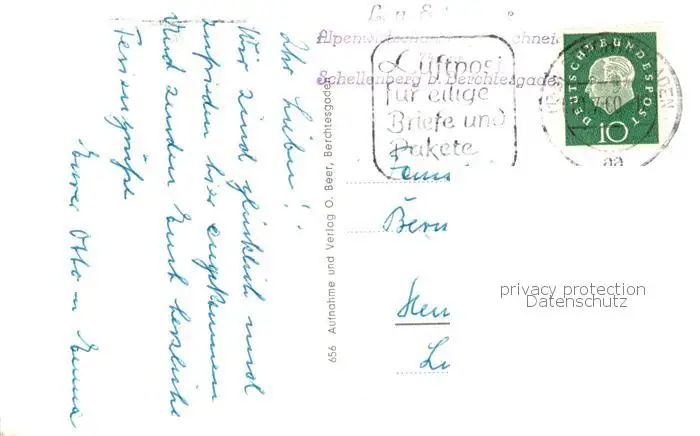 Ihr Lieben!
Wir sind glücklich und
zufrieden hier angekommen
Und senden Euch herzliche
Feriengrüße
Eurer Otto u Emma
656 Aufnahme und Verlag O. Beer, Berchtesgaden
Schellenberg b. Berchtesgaden
Luftpost
für eilige
Briefe und
Pakete
DEUTSCHE BUNDESPOST
10
aa
Fam
Bern
privacy protection
Datenschutz